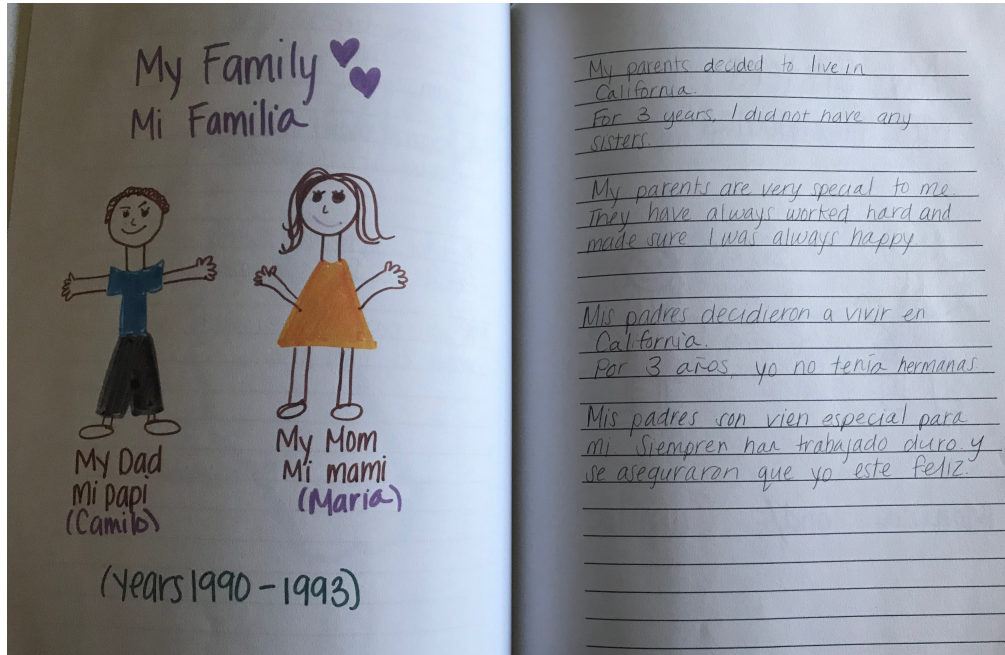 My Family
Mi Familia
My Dad
Mi papi
(Camilo)
My Mom
Mi mami
(Maria)
(years 1990-1993)
My parents decided to live in
California.
For 3 years, I did not have any
sisters.
My parents are very special to me.
They have always worked hard and
made sure I was always happy.
Mis padres decidieron a vivir en
California.
Por 3 años, yo no tenía hermanas.
Mis padres son vien especial para
mi. Siempren han trabajado duro y
se aseguraron que yo este feliz.